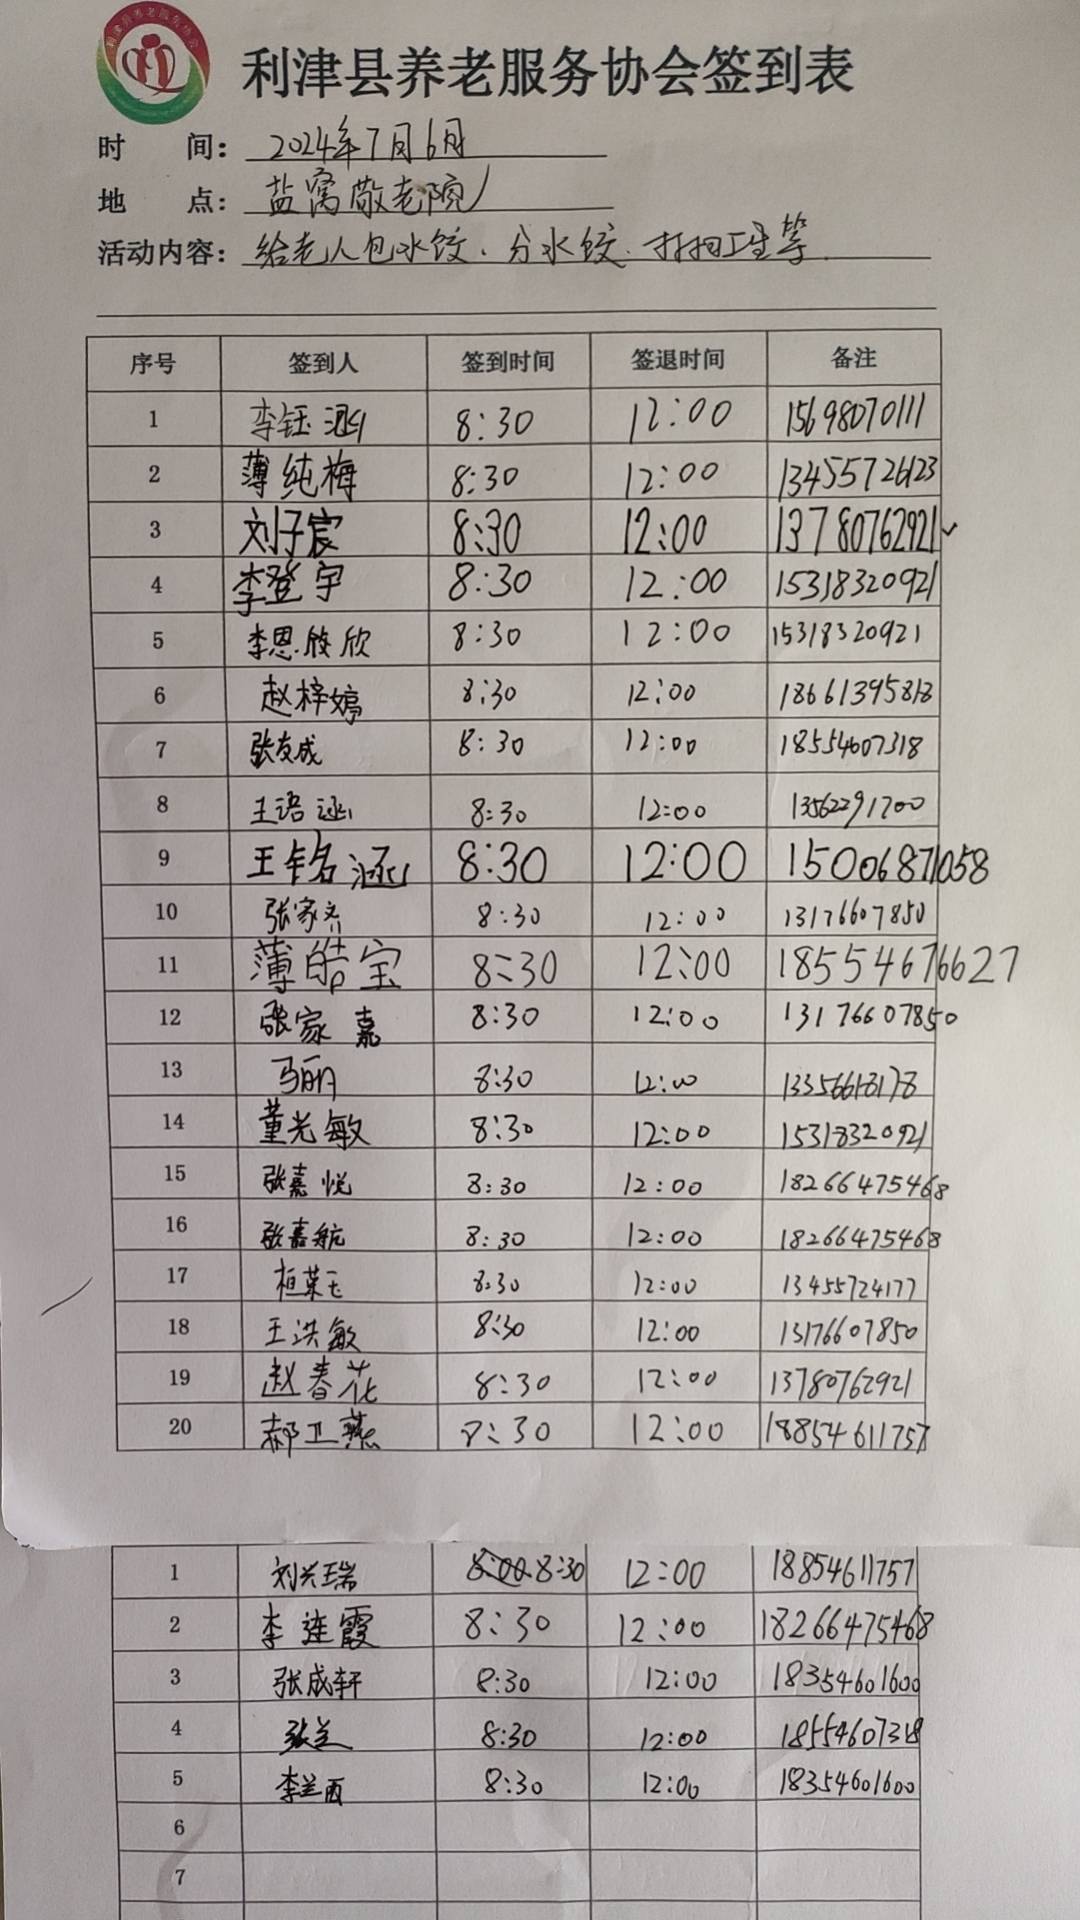 利津县养老服务协会
利津县养老服务协会签到表
时 间: 2024年7月6月
地 点: 盐窝敬老院
活动内容: 给老人包水饺、分水饺、打扫卫生等
序号 签到人 签到时间 签退时间 备注
1 李钰涵 8:30 12:00 15698070111
2 薄纯梅 8:30 12:00 13455726123
3 刘子宸 8:30 12:00 13780762921
4 李登宇 8:30 12:00 15318320921
5 李恩欣 8:30 12:00 15318320921
6 赵梓婷 8:30 12:00 18661395818
7 张友成 8:30 12:00 18554607318
8 王语涵 8:30 12:00 13562291700
9 王铭涵 8:30 12:00 15006871058
10 张家齐 8:30 12:00 13176607850
11 薄皓宝 8:30 12:00 18554676627
12 张家嘉 8:30 12:00 13176607850
13 马丽 8:30 12:00 13356618178
14 董光敏 8:30 12:00 15318320921
15 张嘉悦 8:30 12:00 18266475468
16 张嘉航 8:30 12:00 18266475468
17 桓荣玉 8:30 12:00 13455724177
18 王洪敏 8:30 12:00 13176607850
19 赵春花 8:30 12:00 13780762921
20 郝卫燕 8:30 12:00 18854611757
1 刘兴瑞 8:00 8:30 12:00 18854611757
2 李连霞 8:30 12:00 18266475468
3 张成轩 8:30 12:00 18354601600
4 张兰 8:30 12:00 18554607318
5 李兰西 8:30 12:00 18354601600
6
7